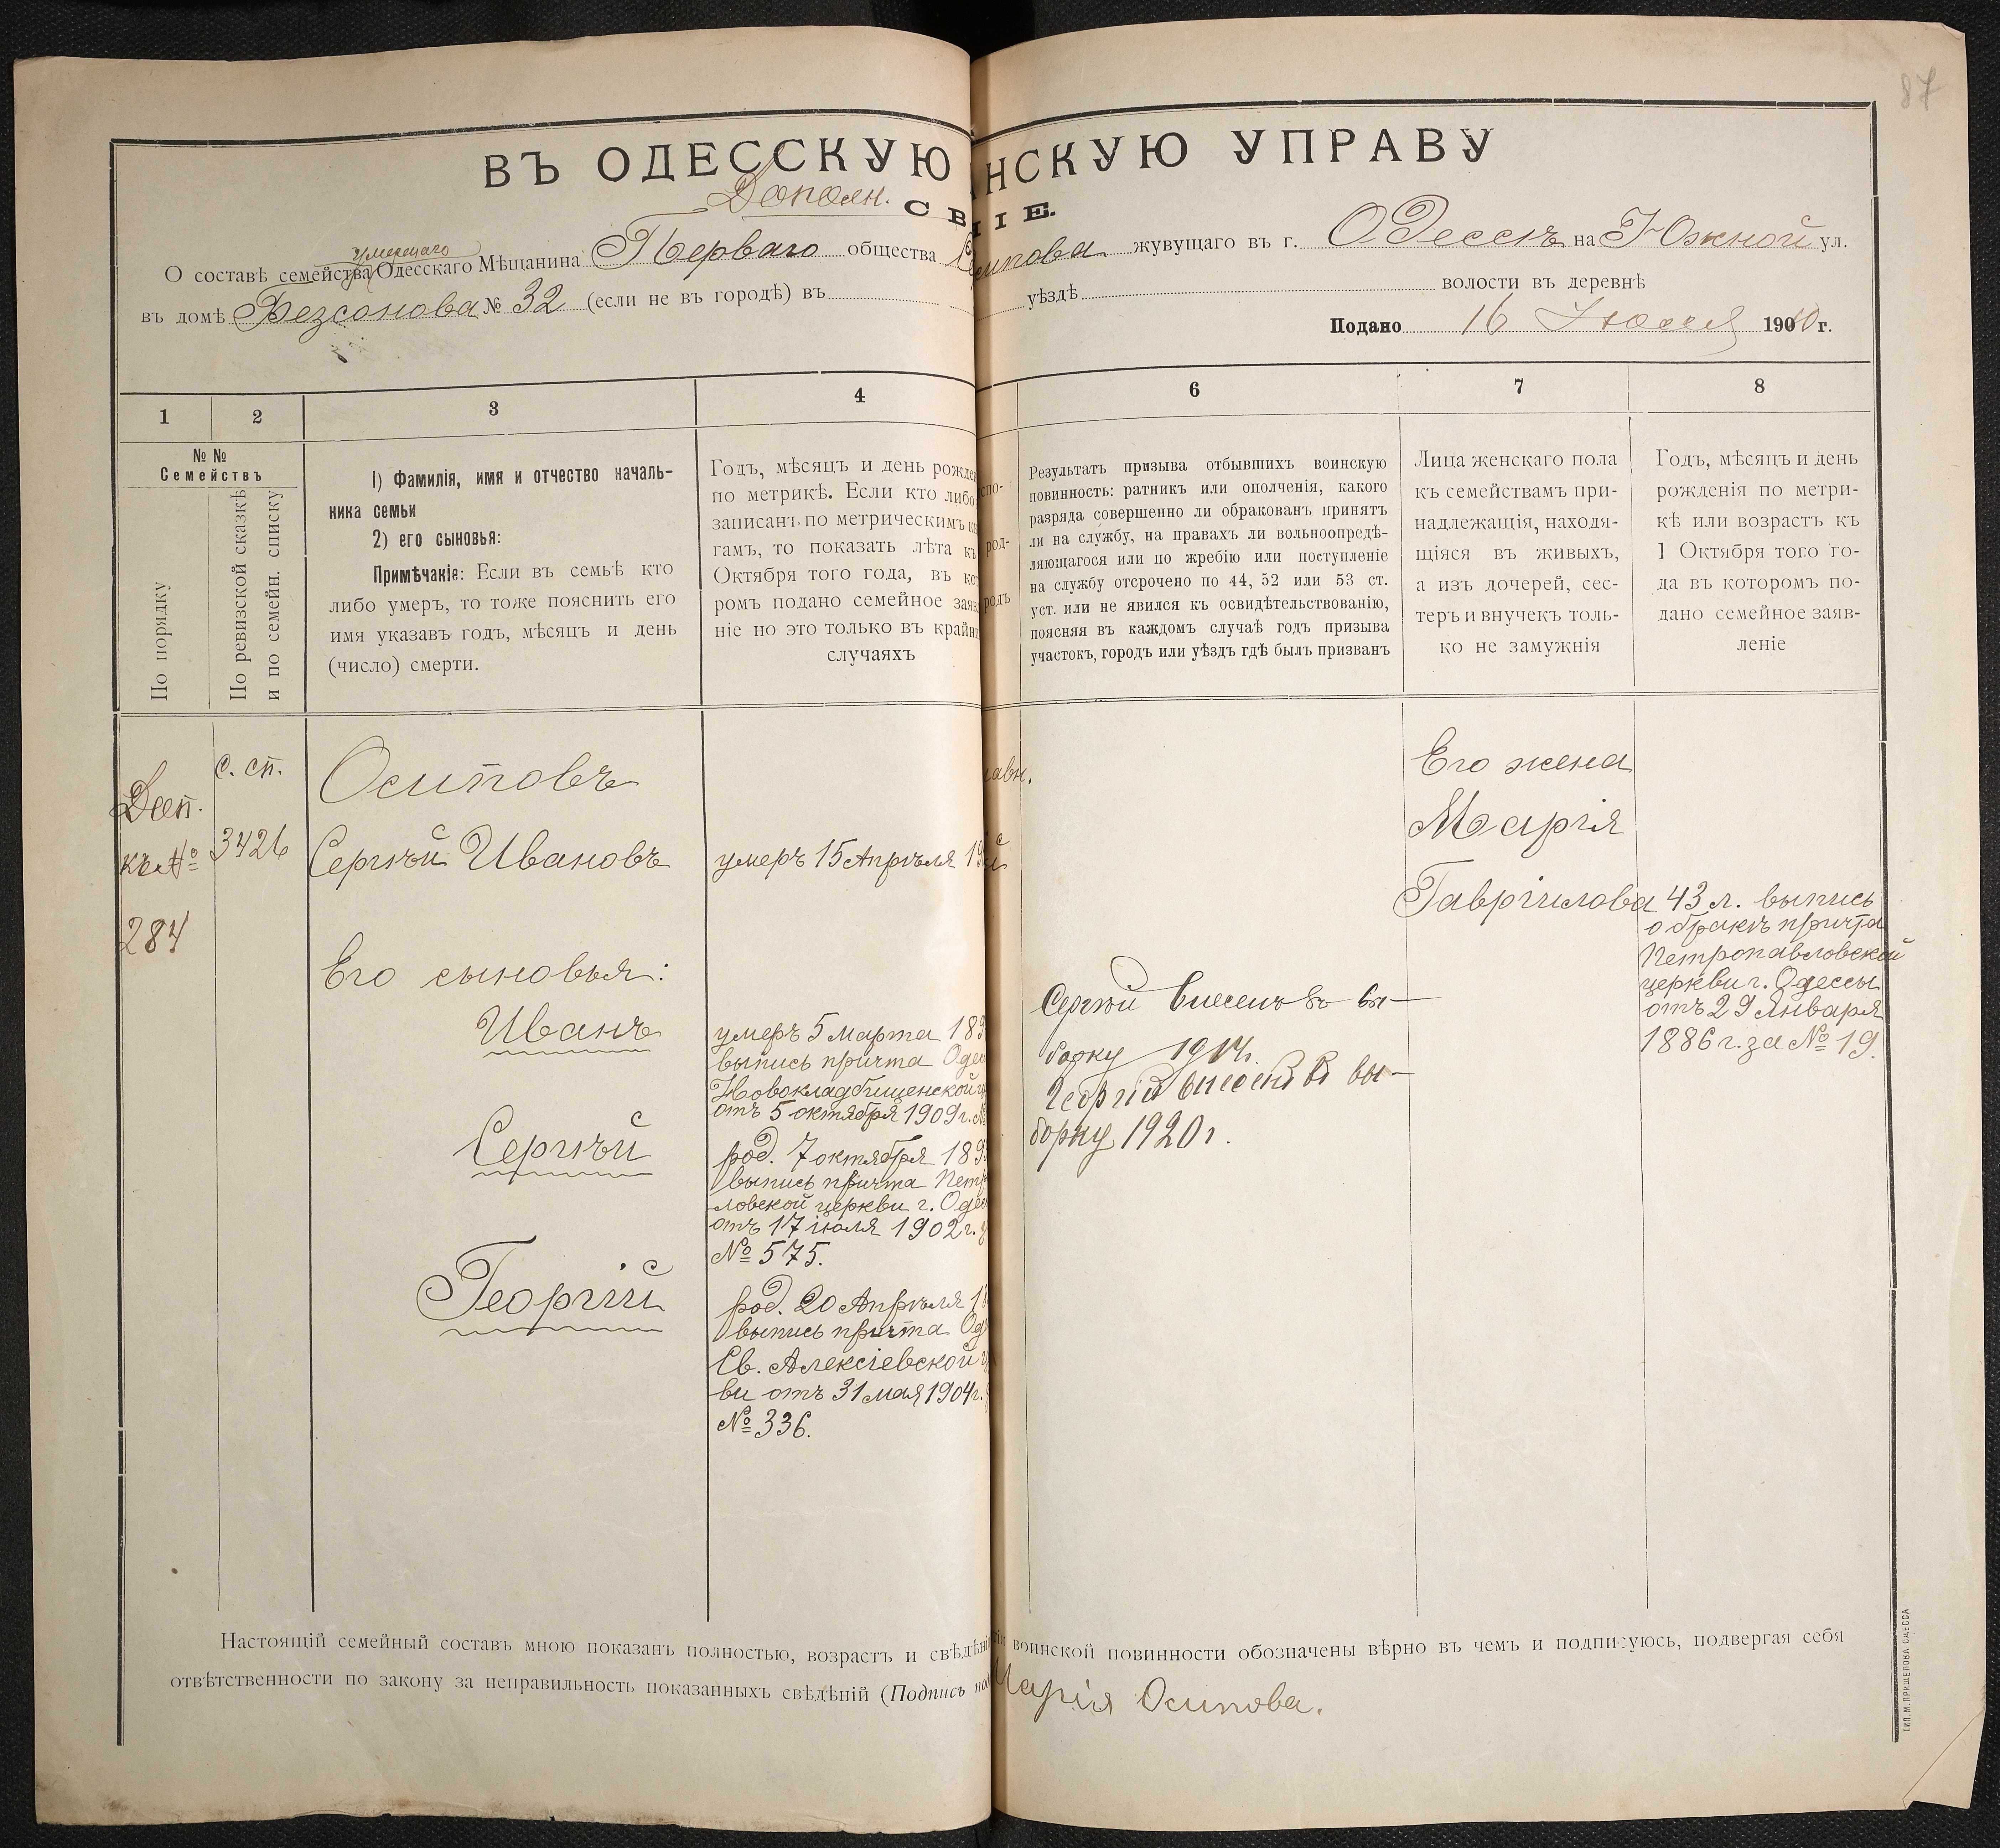 87
ВЪ ОДЕССКУЮ НСКУЮ УПРАВУ
Дополн.
СВ ІЕ.
умершаго
О составѣ семейства Одесскаго Мѣщанина Перваго общества Осипова жувущаго въ г. Одессѣ на Южной ул.
въ домѣ Безсонова № 32 (если не въ городѣ) въ уѣздѣ волости въ деревнѣ
Подано 16 Іюля 1910 г.
1 2 3 4 6 7 8
№ №
Семействъ
По порядку
По ревизской сказкѣ
и по семейн. списку
1) Фамилія, имя и отчество началь-
ника семьи
2) его сыновья:
Примѣчаніе: Если въ семьѣ кто
либо умеръ, то тоже пояснить его
имя указавъ годъ, мѣсяцъ и день
(число) смерти.
Годъ, мѣсяцъ и день рожде
по метрикѣ. Если кто либо
записанъ по метрическимъ к
гамъ, то показать лѣта къ
Октября того года, въ кот
ромъ подано семейное заяв
ніе но это только въ крайн
случаяхъ
спо-
род-
родъ
Результатъ призыва отбывшихъ воинскую
повинность: ратникъ или ополченія, какого
разряда совершенно ли обракованъ принятъ
ли на службу, на правахъ ли вольноопредѣ-
ляющагося или по жребію или поступленіе
на службу отсрочено по 44, 52 или 53 ст.
уст. или не явился къ освидѣтельствованію,
поясняя въ каждомъ случаѣ годъ призыва
участокъ, городъ или уѣздъ гдѣ былъ призванъ
Лица женскаго пола
къ семействамъ при-
надлежащія, находя-
щіяся въ живыхъ,
а изъ дочерей, сес-
теръ и внучекъ толь-
ко не замужнія
Годъ, мѣсяцъ и день
рожденія по метри-
кѣ или возрастъ къ
1 Октября того го-
да въ котором по-
дано семейное заяв-
леніе
Доп.
къ №
284
с. сп.
3426
Осиповъ
Сергѣй Ивановъ
Его сыновья:
Иванъ
Сергѣй
Георгій
умеръ 15 Апрѣля 19
умеръ 5 марта 189
выпись причта Одес
Новокладбищенской ц
отъ 5 октября 1909 г. №
род. 7 октября 189
выпись причта Петр
ловской церкви г. Одес
отъ 17 іюля 1902 г. з
№ 575.
род. 20 Апрѣля 18
выпись причта Од
Св. Алексіевской ц
ви отъ 31 мая 1904 г.
№ 336.
авн.
й
Сергѣй внесенъ въ вы-
борку 1914 г.
Георгій внесенъ въ вы-
борку 1920 г.
Его жена
Марія
Гавріилова
43 л. выпись
о бракѣ причта
Петропавловской
церкви г. Одессы
отъ 29 Января
1886 г. за № 19.
Настоящій семейный составъ мною показанъ полностью, возрастъ и свѣдѣні воинской повинности обозначены вѣрно въ чемъ и подписуюсь, подвергая себя
отвѣтственности по закону за неправильность показанныхъ свѣдѣній (Подпись под Марія Осипова.
ТИП. М. ПРИЩЕПОВА ОДЕССА